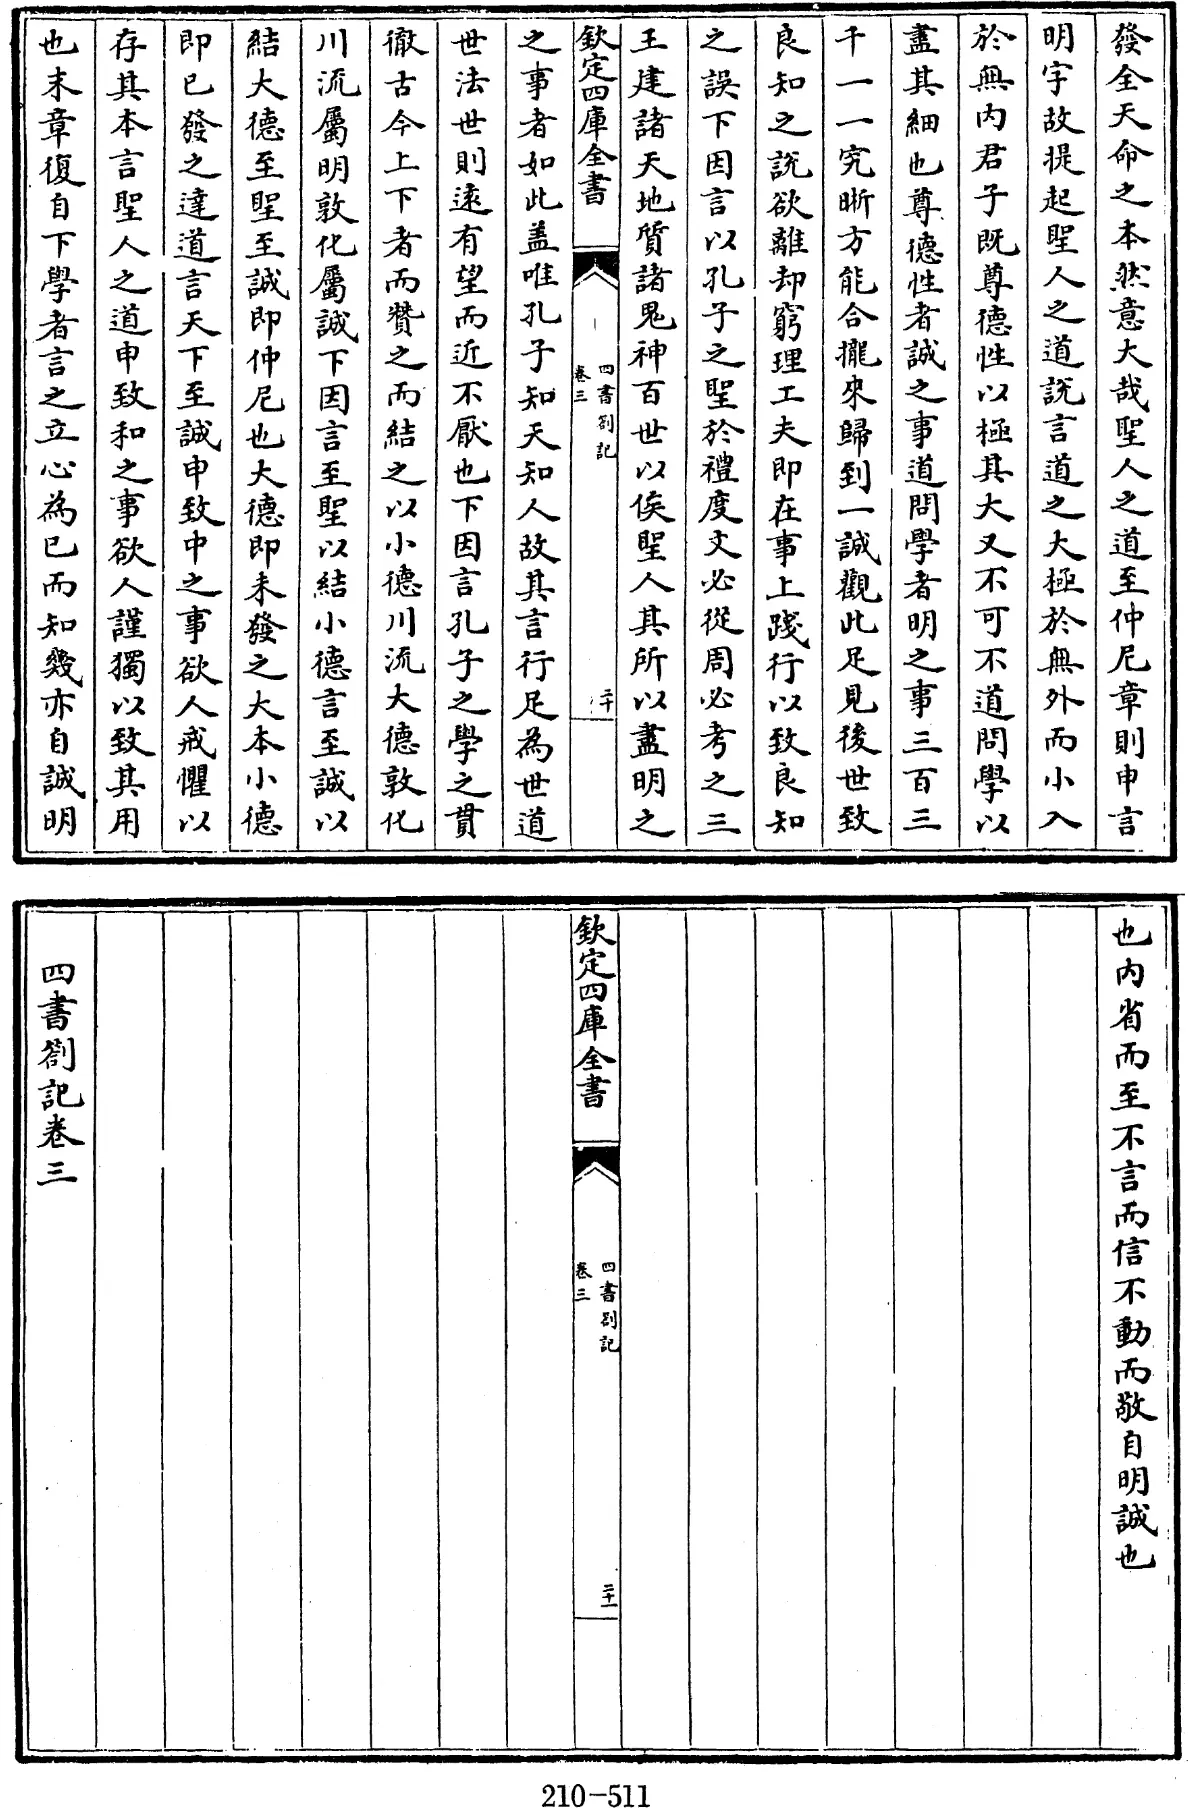 發全天命之本然意大哉聖人之道至仲尼章則申言
明字故提起聖人之道說言道之大極於無外而小入
於無内君子既尊德性以極其大又不可不道問學以
盡其細也尊德性者誠之事道問學者明之事三百三
千一一究晰方能合攏來歸到一誠觀此足見後世致
良知之說欲離却窮理工夫即在事上踐行以致良知
之誤下因言以孔子之聖於禮度文必從周必考之三
王建諸天地質諸鬼神百世以俟聖人其所以盡明之
欽定四庫全書
四書劄記
卷三
二十
之事者如此盖唯孔子知天知人故其言行足為世道
世法世則遠有望而近不厭也下因言孔子之學之貫
徹古今上下者而贊之而結之以小德川流大德敦化
川流屬明敦化屬誠下因言至聖以結小德言至誠以
結大德至聖至誠即仲尼也大德即未發之大本小德
即已發之達道言天下至誠申致中之事欲人戒懼以
存其本言聖人之道申致和之事欲人謹獨以致其用
也末章復自下學者言之立心為已而知幾亦自誠明
也内省而至不言而信不動而敬自明誠也
欽定四庫全書
四書劄記
卷三
二十一
四書劄記卷三
210-511